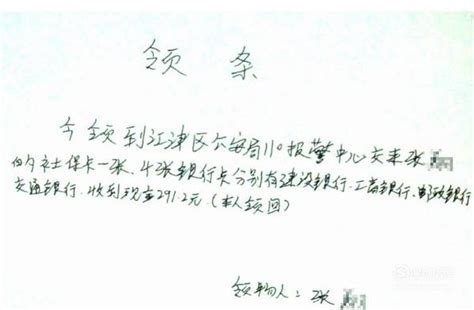 领 条
今领到江津区公安局110报警中心交来张
的内社保卡一张、4张银行卡分别有建设银行、工商银行、邮政银行
交通银行、收到现金291.2元。(本人领回)
领物人:张